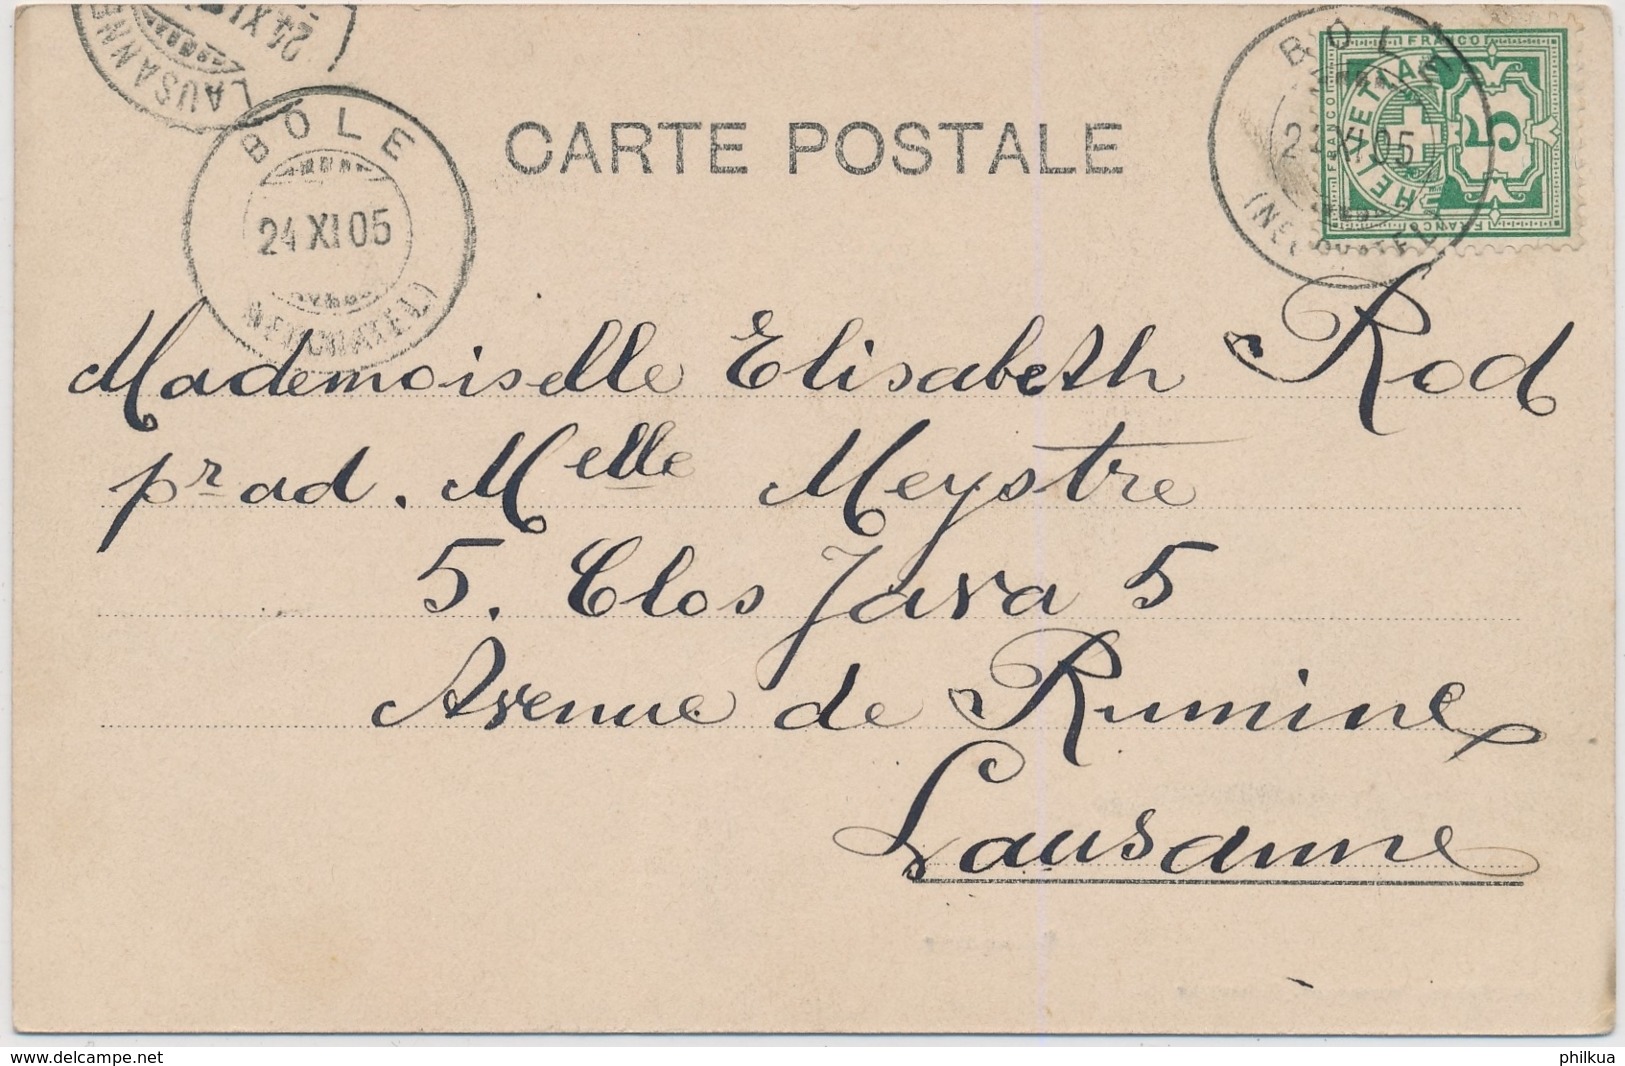 LAUSANNE
24 XI
BÔLE
24 XI 05
(NEUCHATEL)
CARTE POSTALE
BOLE
2 XI 05
(NEUCHATEL)
FRANCO
FRANCO
FRANCO
HELVETIA
5
Mademoiselle Elisabeth Rod
pr ad. Melle Meystre
5. Clos Java 5
Avenue de Rumine
Lausanne
delcampe.net
philkua